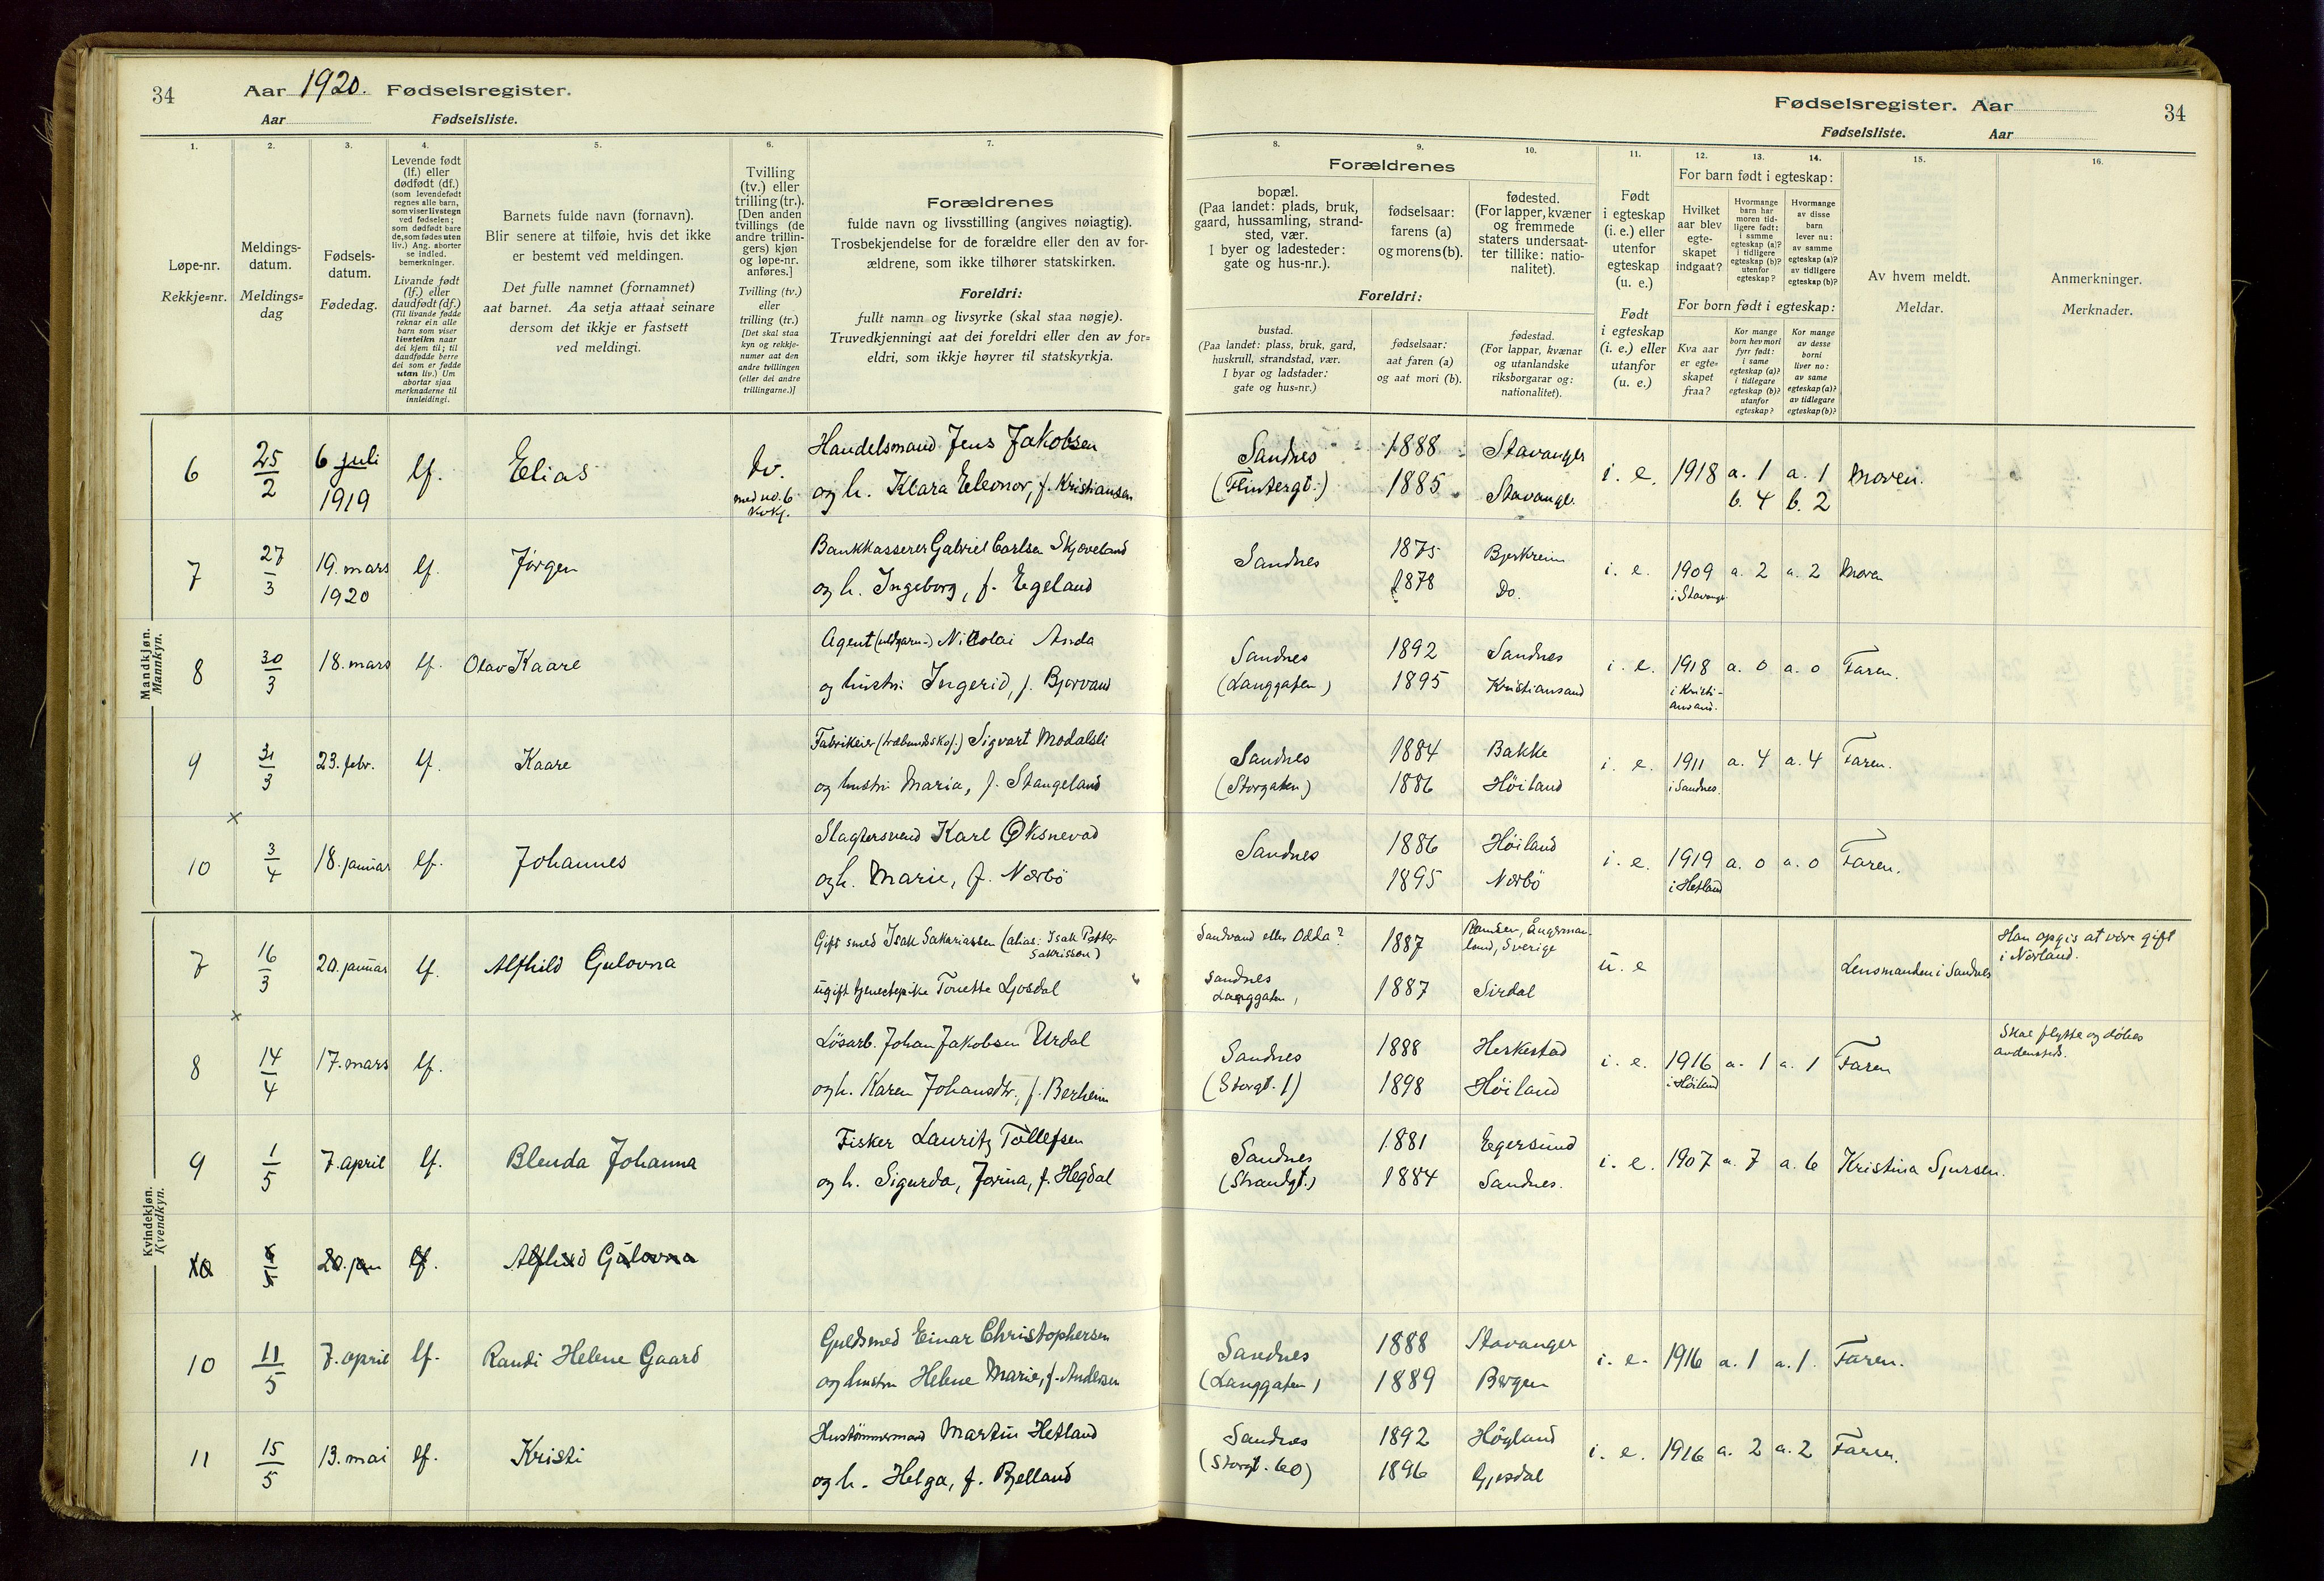 34
Aar 1920. Fødselsregister.
Aar Fødselsliste.
Fødselsregister. Aar
Fødselsliste. Aar
34
1. 2. 3. 4. 5. 6. 7.
Løpe-nr.
Rekkje-nr.
Meldings-
datum.
Meldings-
dag
Fødsels-
datum.
Fødedag.
Levende født
(lf.) eller
dødfødt (df.)
(som levendefødt
regnes alle barn,
som viser livstegn
ved fødselen;
som dødfødt bare
de, som fødes uten
liv.) Ang. aborter
se indled.
bemerkninger.
Livande født
(lf.) eller
daudfødt (df.)
(Til livande fødde
reknar ein alle
born som viser
livsteikn naar
dei kjem til; til
daudfødde berre
dei som er fødde
utan liv.) Um
abortar sjaa
merknaderne til
innleidingi.
Barnets fulde navn (fornavn).
Blir senere at tilføie, hvis det ikke
er bestemt ved meldingen.
Det fulle namnet (fornamnet)
aat barnet. Aa setja attaat seinare
dersom det ikkje er fastsett
ved meldingi.
Tvilling
(tv.) eller
trilling (tr.).
[Den anden
tvillings (de
andre trillin-
gers) kjøn
og løpe-nr.
anføres.]
Tvilling (tv.)
eller
trilling (tr.)
[Det skal staa
kyn og rekkje-
numer aat den
andre tvillingen
(eller dei andre
trillingarne.)]
Forældrenes
fulde navn og livsstilling (angives nøiagtig).
Trosbekjendelse for de forældre eller den av for-
ældrene, som ikke tilhører statskirken.
Foreldri:
fullt namn og livsyrke (skal staa nøgje).
Truvedkjenningi aat dei foreldri eller den av for-
eldri, som ikkje høyrer til statskyrkja.
8. 9. 10. 11. 12. 13. 14. 15. 16.
Forældrenes
bopæl.
(Paa landet: plads, bruk,
gaard, hussamling, strand-
sted, vær.
I byer og ladesteder:
gate og hus-nr.).
fødselsaar:
farens (a)
og morens (b).
fødested.
(For lapper, kvæner
og fremmede
staters undersaat-
ter tillike: natio-
nalitet).
Foreldri:
bustad.
(Paa landet: plass, bruk, gard,
huskrull, strandstad, vær.
I byar og ladstader:
gate og hus-nr.)
fødselsaar:
aat faren (a)
og aat mori (b).
fødestad.
(For lappar, kvænar
og utanlandske
riksborgarar og:
nationalitet).
Født
i egteskap
(i. e.) eller
utenfor
egteskap
(u. e.)
Født
i egteskap
(i. e.) eller
utanfor
(u. e.)
For barn født i egteskap:
Hvilket
aar blev
egte-
skapet
indgaat?
Hvormange
barn har
moren tid-
ligere født:
i samme
egteskap (a)?
i tidligere
egteskap (b)?
utenfor
egteskap?
Hvormange
av disse
barn
lever nu:
av samme
egteskap (a)?
av tidligere
egteskap (b)?
For born født i egteskap:
Kva aar
er egte-
skapet
fraa?
Kor mange
born hev mori
fyrr født:
i same
egteskap (a)?
i tidlegare
egteskap (b)?
utanfor
egteskap?
Kor mange
av desse
borni
liver no:
av same
egteskap (a)?
av tidlegare
egteskap (b)?
Av hvem meldt.
Meldar.
Anmerkninger.
Merknader.
Mandkjøn.
Mannkyn.
6 25/2 6 juli 1919 lf. Elias tv. med no. 6 kvkj. Handelsmand Jens Jakobsen
og h. Klara Eleonor, f. Kristiansen
Sandnes (Flintergt.) 1888 Stavanger i. e. 1918 a. 1 a. 1 Moren.
1885 Stavange. b. 4 b. 2
7 27/3 19. mars 1920 lf. Jørgen Bankkasserer Gabriel Carlsen Skjæveland
og h. Ingeborg, f. Egeland
Sandnes 1875 Bjerkreim i. e. 1909 a. 2 a. 2 Moren
1878 Do. i Stavange.
8 30/3 18. mars lf. Olav Kaare Agent (uldgarn-) Nicolai Anda
og hustru Ingerid, f. Bjorvand
Sandnes (Langgaten) 1892 Sandnes i. e. 1918 a. 0 a. 0 Faren.
1895 Kristiansand i Kristi-
ansand.
9 31/3 23. febr. lf. Kaare Fabrikeier Sigvart Modalsli
og hustru Maria, f. Stangeland
Sandnes (Storgaten) 1884 Bakke i. e. 1911 a. 4 a. 4 Faren.
1886 Höiland i Sandnes.
×
10 3/4 18. januar lf. Johannes Slagtersvend Karl Øksnevad
og h. Marie, f. Nærbö
Sandnes 1886 Höiland i. e. 1919 a. 0 a. 0 Faren.
1895 Nærbö i Hetland
Kvindekjøn.
Kvendkyn.
7 16/3 20. januar lf. Alfhild Gulovna Gift smed Isak Sakariassen (alias: Isak Petter
Sakrisson)
ugift tjenestepike Tonette Ljosdal
Sandvand eller Odda? 1887 Ångerman-
land, Sverige u. e Lensmanden i Sandnes Han opgis at være gift
i Norland.
Sandnes Langgaten, 1887 Sirdal
×
8 14/4 17. mars lf. Løsarb. Johan Jakobsen Urdal
og h. Karen Johansdtr., f. Berheim
Sandnes (Storgt. 1) 1888 Heskestad i. e. 1916 a. 1 a. 1 Faren Skal flytte og døbes
andensteds.
1898 Höiland i Höiland
9 1/5 7. april lf. Blenda Johanna Fisker Lauritz Tollefsen
og h. Sigurda, Jorina, f. Hegdal
Sandnes (Strandgt.) 1881 Egersund i. e. 1907 a. 7 a. 6 Kristina Sjursen.
1884 Sandnes.
10 20. jan lf. Alfhild Gulovna
10 11/5 7. april lf. Randi Helene Gaard Guldsmed Einar Christophersen
og hustru Helene Marie, f. Andersen
Sandnes (Langgaten) 1888 Stavanger i. e. 1916 a. 1 a. 1. Faren.
1889 Bergen
11 15/5 13. mai lf. Kristi Hustømmermand Martin Hetland
og h. Helga, f. Bjelland
Sandnes (Storgt. 60) 1892 Högland i. e. 1916 a. 2 a. 2 Faren.
1896 Gjesdal